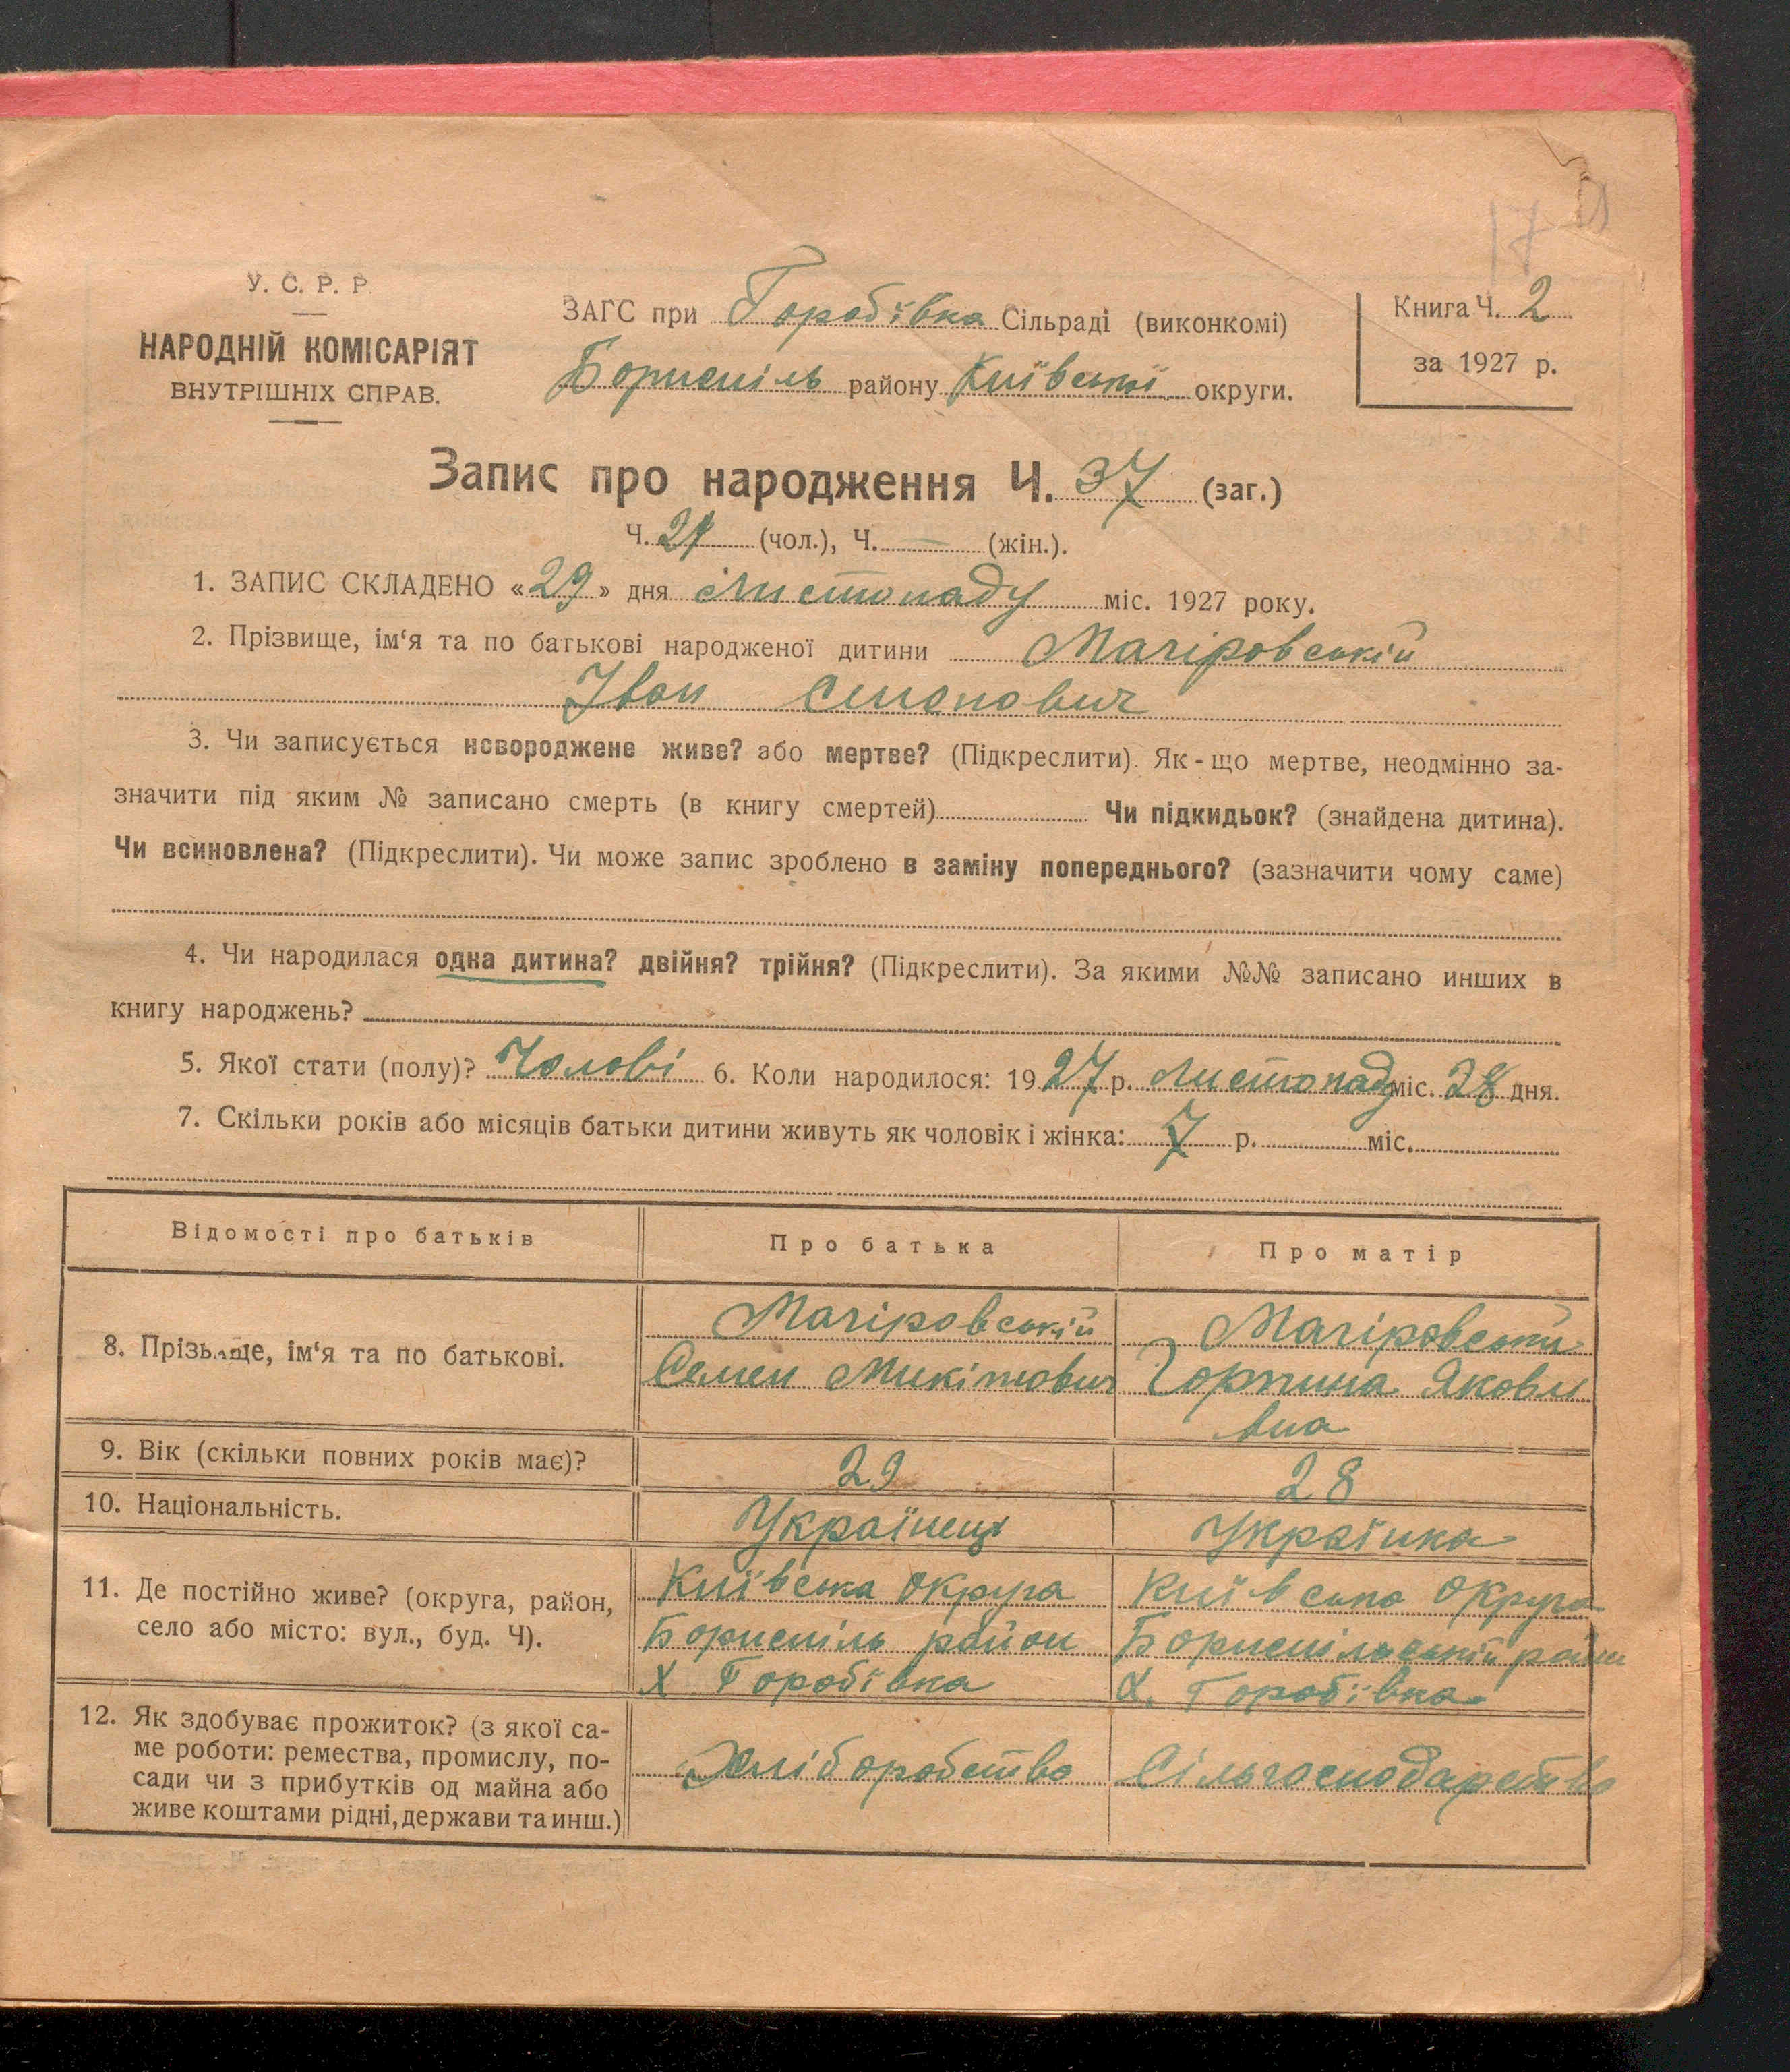 17
У. С. Р. Р.
НАРОДНІЙ КОМІСАРІЯТ
ВНУТРІШНІХ СПРАВ.
ЗАГС при Горобівка Сільраді (виконкомі)
Бориспіль району Київської округи.
Книга Ч. 2
за 1927 р.
Запис про народження Ч. 37 (заг.)
Ч. 21 (чол.), Ч. — (жін.).
1. ЗАПИС СКЛАДЕНО «29» дня Листопаду міс. 1927 року.
2. Прізвище, ім‘я та по батькові народженої дитини Магіровський
Іван Семонович
3. Чи записується новороджене живе? або мертве? (Підкреслити). Як-що мертве, неодмінно за-
значити під яким № записано смерть (в книгу смертей) Чи підкидьок? (знайдена дитина).
Чи всиновлена? (Підкреслити). Чи може запис зроблено в заміну попереднього? (зазначити чому саме)
4. Чи народилася одна дитина? двійня? трійня? (Підкреслити). За якими №№ записано инших в
книгу народжень?
5. Якої стати (полу)? Чолові 6. Коли народилося: 1927 р. Листопаду міс. 28 дня.
7. Скільки років або місяців батьки дитини живуть як чоловік і жінка: 7 р. міс.
Відомості про батьків Про батька Про матір
8. Прізвище, ім‘я та по батькові.
Магіровській
Семен Микітович
Магіровськи
Горпина Якови
вна
9. Вік (скільки повних років має)? 29 28
10. Національність. Українець Українка
11. Де постійно живе? (округа, район,
село або місто: вул., буд. Ч).
Київська округа
Бориспіль район
Х Горобівка
Київська округа
Бориспільський район
Х. Горобівка
12. Як здобуває прожиток? (з якої са-
ме роботи: ремества, промислу, по-
сади чи з прибутків од майна або
живе коштами рідні, держави та инш.)
Хліборобство
Сільгосподарство